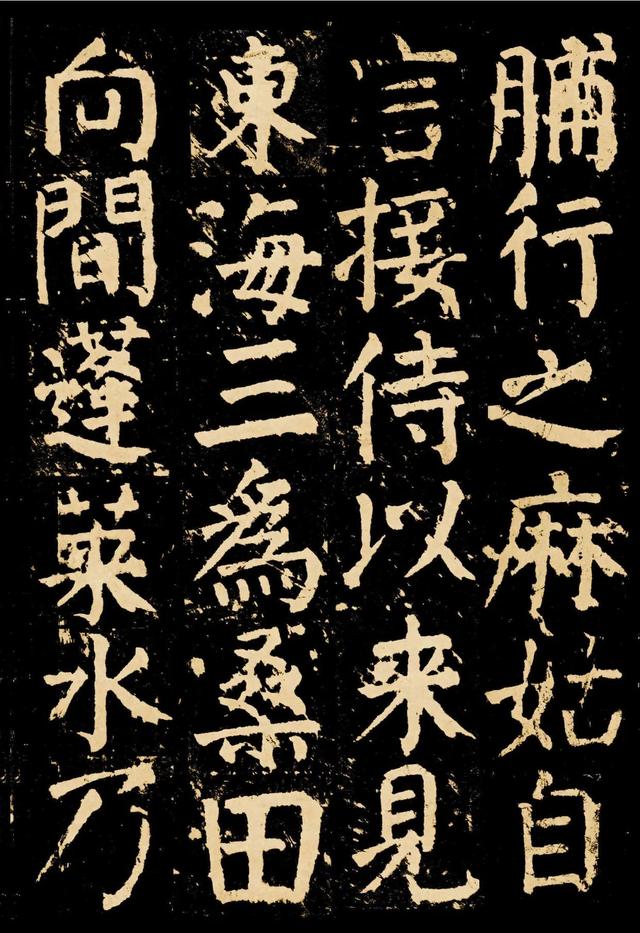 脯行之麻姑自
言接待以来見
東海三為桑田
向間蓬萊水乃